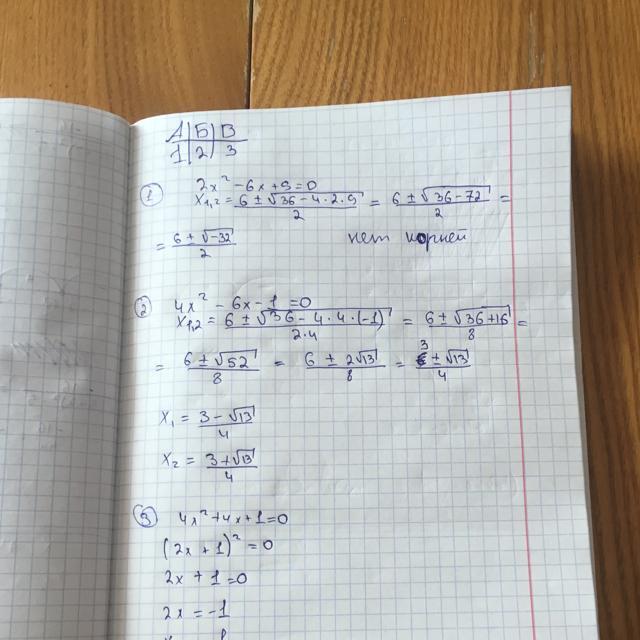 А | Б | В
1 | 2 | 3
① 2x² - 6x + 9 = 0
x₁,₂ = (6 ± √(36 - 4 · 2 · 9))/2 = (6 ± √(36 - 72))/2 =
= (6 ± √-32)/2 нет корней
② 4x² - 6x - 1 = 0
x₁,₂ = (6 ± √(36 - 4 · 4 · (-1)))/(2 · 4) = (6 ± √(36 + 16))/8 =
= (6 ± √52)/8 = (6 ± 2√13)/8 = (3 ± √13)/4
x₁ = (3 - √13)/4
x₂ = (3 + √13)/4
③ 4x² + 4x + 1 = 0
(2x + 1)² = 0
2x + 1 = 0
2x = -1